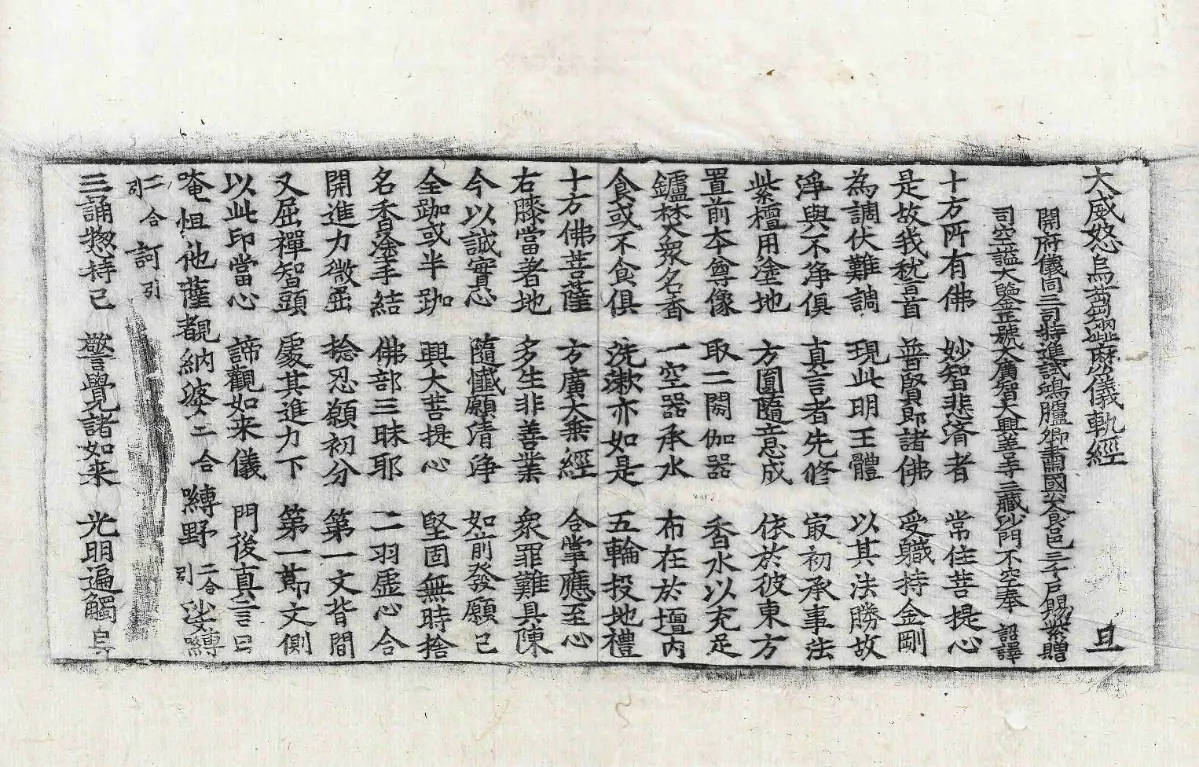 大威怒烏芻澁麽儀軌經 旦
開府儀同三司特進試鴻臚卿肅國公食邑三千戶賜紫贈
司空謚大鑒正號大廣智大興善寺三藏沙門不空奉 詔譯
十方所有佛 妙智悲済者 常住菩提心
是故我稽首 普賢即諸佛 受軄持金剛
為調伏難調 現此明王體 以其法勝故
淨與不淨俱 真言者先修 㝡初承事法
紫檀用塗地 方圓隨意成 依於彼東方
置前本尊像 取二閼伽器 香水以充足
鑪焚衆名香 一空器承水 布在於壇内
食或不食俱 洗漱亦如是 五輪投地禮
十方佛菩薩 方廣大乗經 合掌應至心
右膝當著地 多生非善業 衆罪難具陳
今以誠實心 隨懺願清淨 如前發願已
全跏或半跏 興大菩提心 堅固無時捨
名香塗手結 佛部三昧耶 二羽虚心合
開進力微屈 捻忍願初分 第一文背間
又屈禪智頭 處其進力下 第一節文側
以此印當心 諦觀如来儀 門後真言曰
唵怛他蘖覩納婆二合嚩野二合引娑嚩
二合引訶引
三誦惣持已 警覺諸如来 光明遍觸身